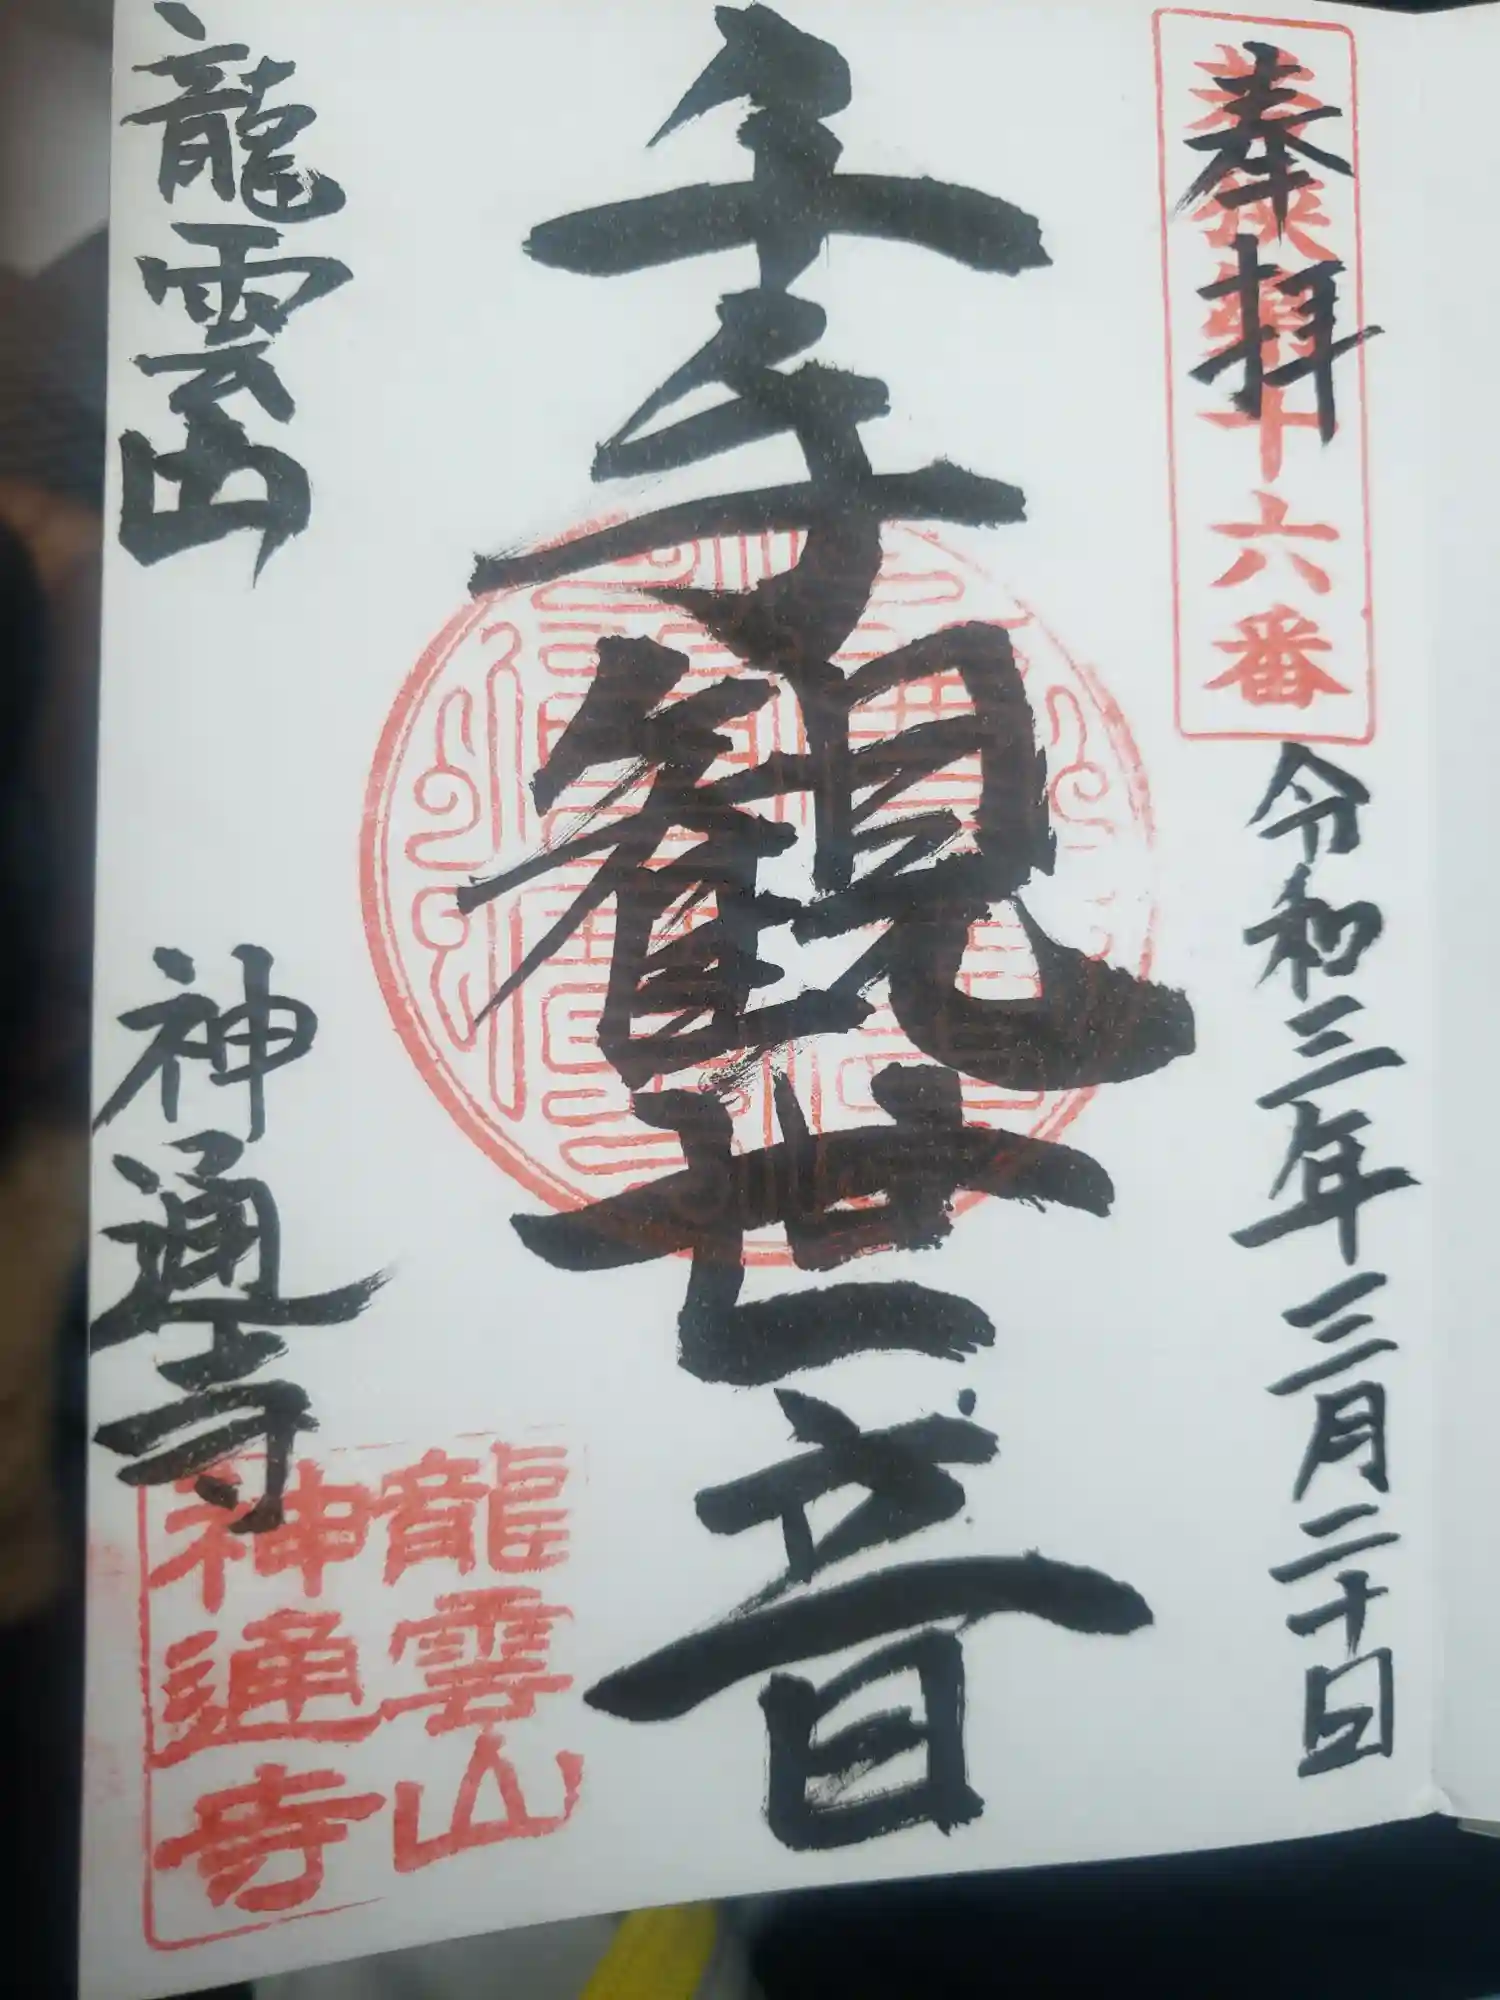 奉拝
若狭第十六番
令和三年三月二十日
千手観世音
龍雲山
神通寺
龍雲山
神通寺